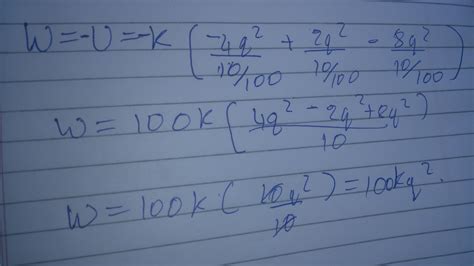 W = -U = -K ( -4q²/10/100 + 2q²/10/100 - 8q²/10/100 )
W = 100K ( 4q² - 2q² + 8q² / 10 )
W = 100K ( 10q² / 10 ) = 100Kq².